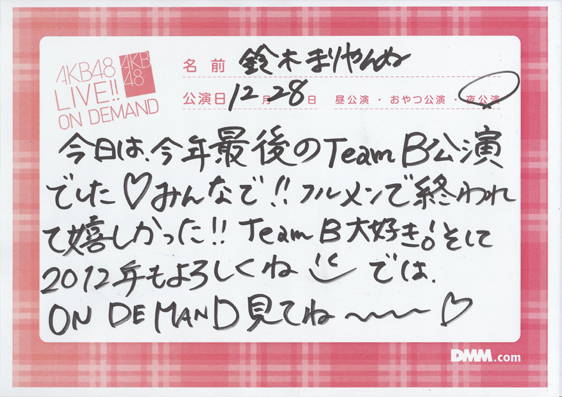 AKB48
LIVE!!
ON DEMAND
AKB
48
名前 鈴木まりやんぬ
公演日 12月28日 昼公演・おやつ公演・夜公演
今日は、今年最後のTeam B公演
でした♡みんなで!!フルメンで終われ
て嬉しかった!! Team B大好き!そして
2012年もよろしくね では、
ON DEMAND見てね〜〜〜♡
DMM.com